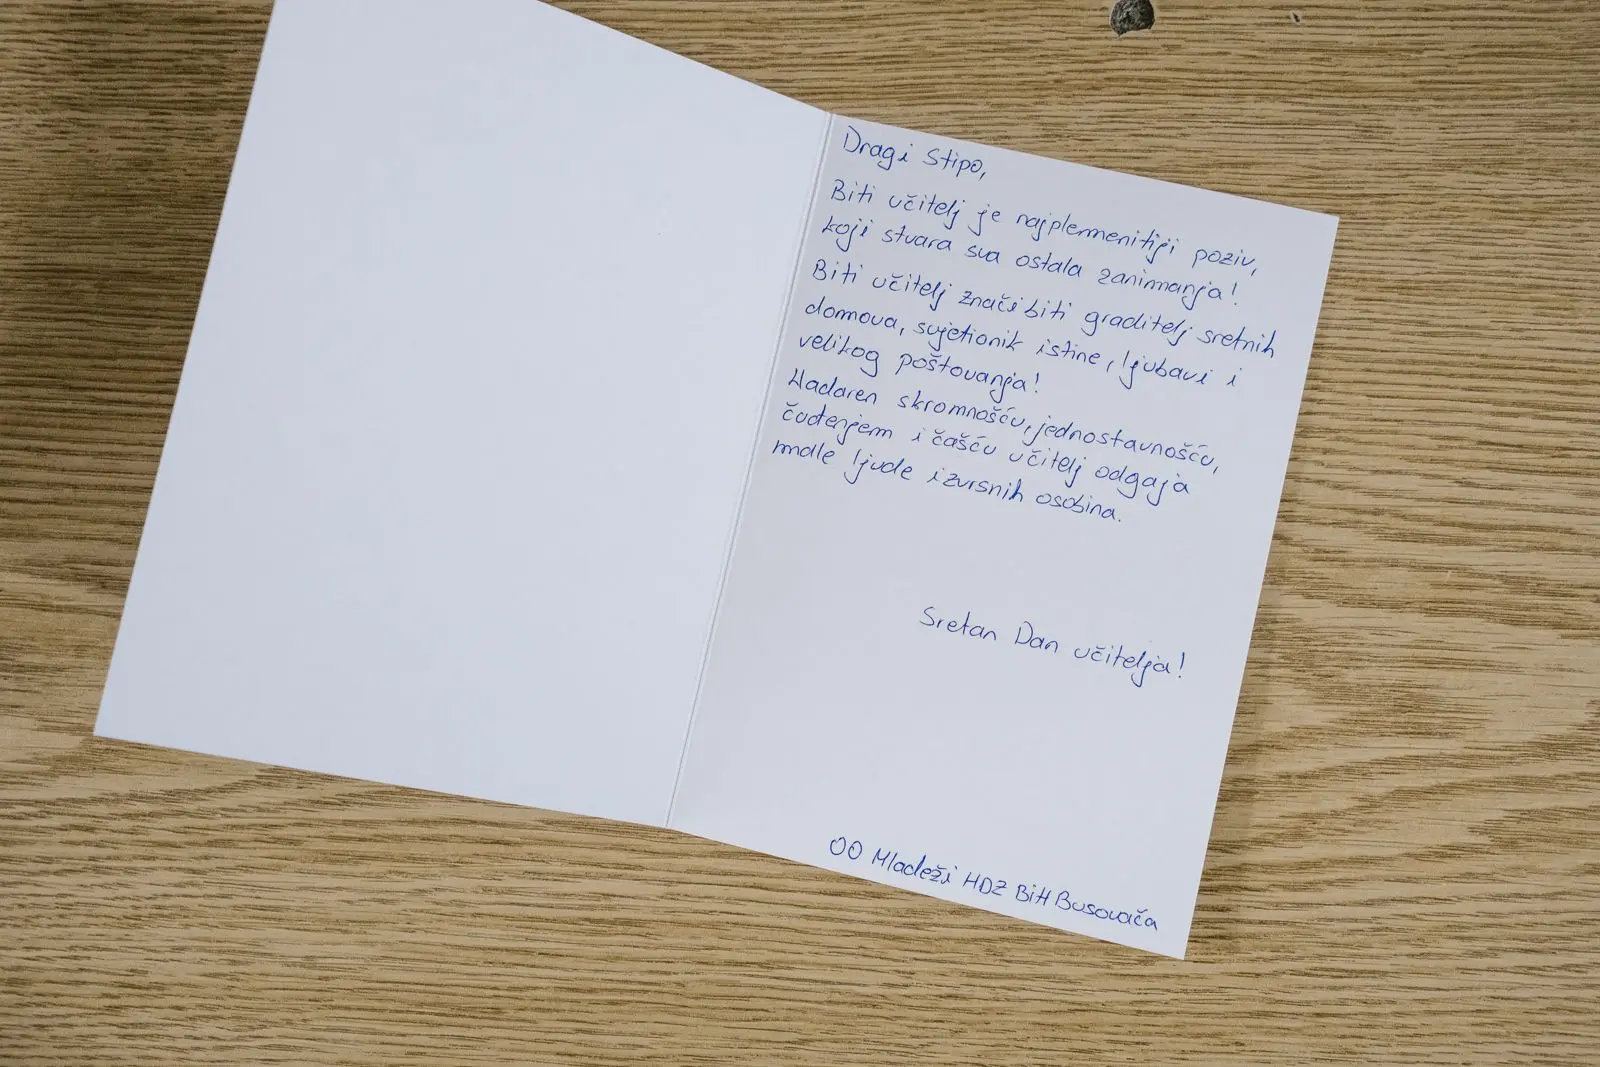 Dragi Stipo,
Biti učitelj je najplemenitiji poziv,
koji stvara sva ostala zanimanja!
Biti učitelj znači biti graditelj sretnih
domova, svjetionik istine, ljubavi i
velikog poštovanja!
Nadaren skromnošću, jednostavnošću,
čuđenjem i čašću učitelj odgaja
mlade ljude izvrsnih osobina.
Sretan Dan učitelja!
OO Mladeži HDZ BiH Busovača